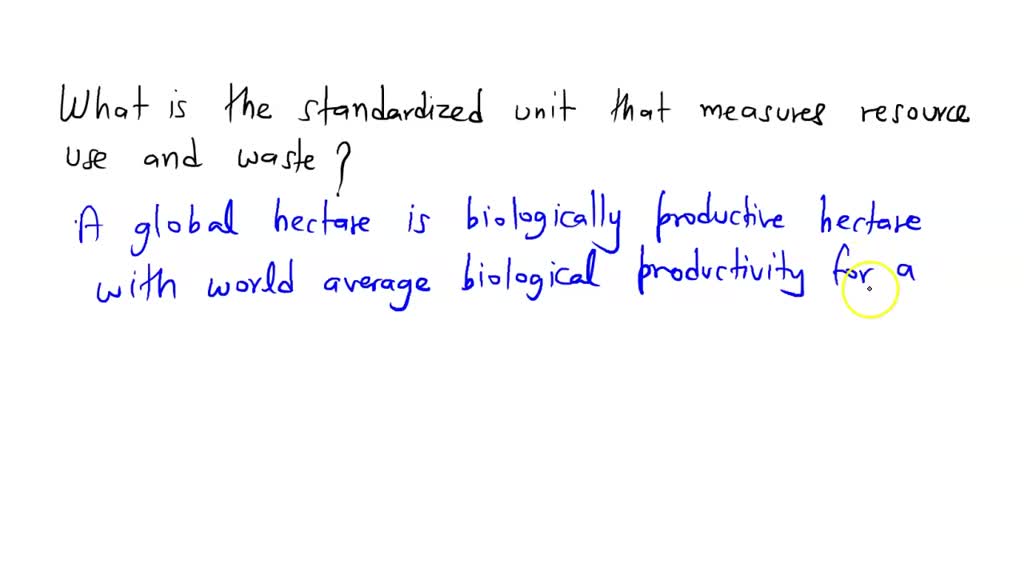 What is the standardized unit that measures resource
use and waste?
A global hectare is biologically productive hectare
with world average biological productivity for a